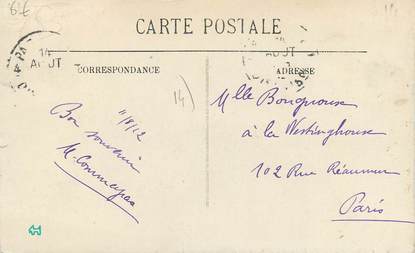 6€
CARTE POSTALE
14
AOUT
AOUT
CORRESPONDANCE
ADRESSE
14)
11/8/12
Bon souvenir
Mlle
à la Westinghouse
102 Rue Réaumur
Paris